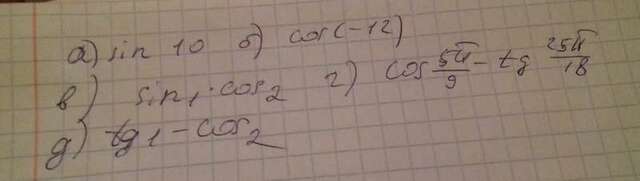 а) sin 10 б) cos(-12)
в) sin 1 · cos 2 г) cos 5π/9 - tg 25π/18
д) tg 1 - cos 2